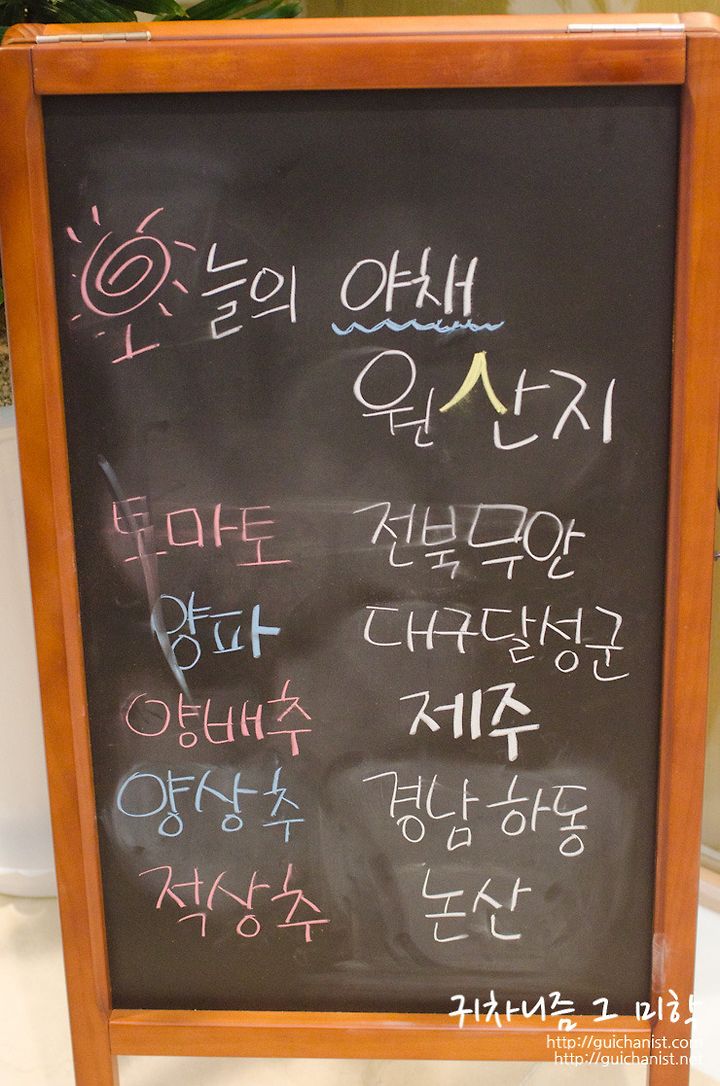 오늘의 야채
원산지
토마토 전북무안
양파 대구달성군
양배추 제주
양상추 경남하동
적상추 논산
귀차니즘 그 미학
http://guichanist.com
http://guichanist.net